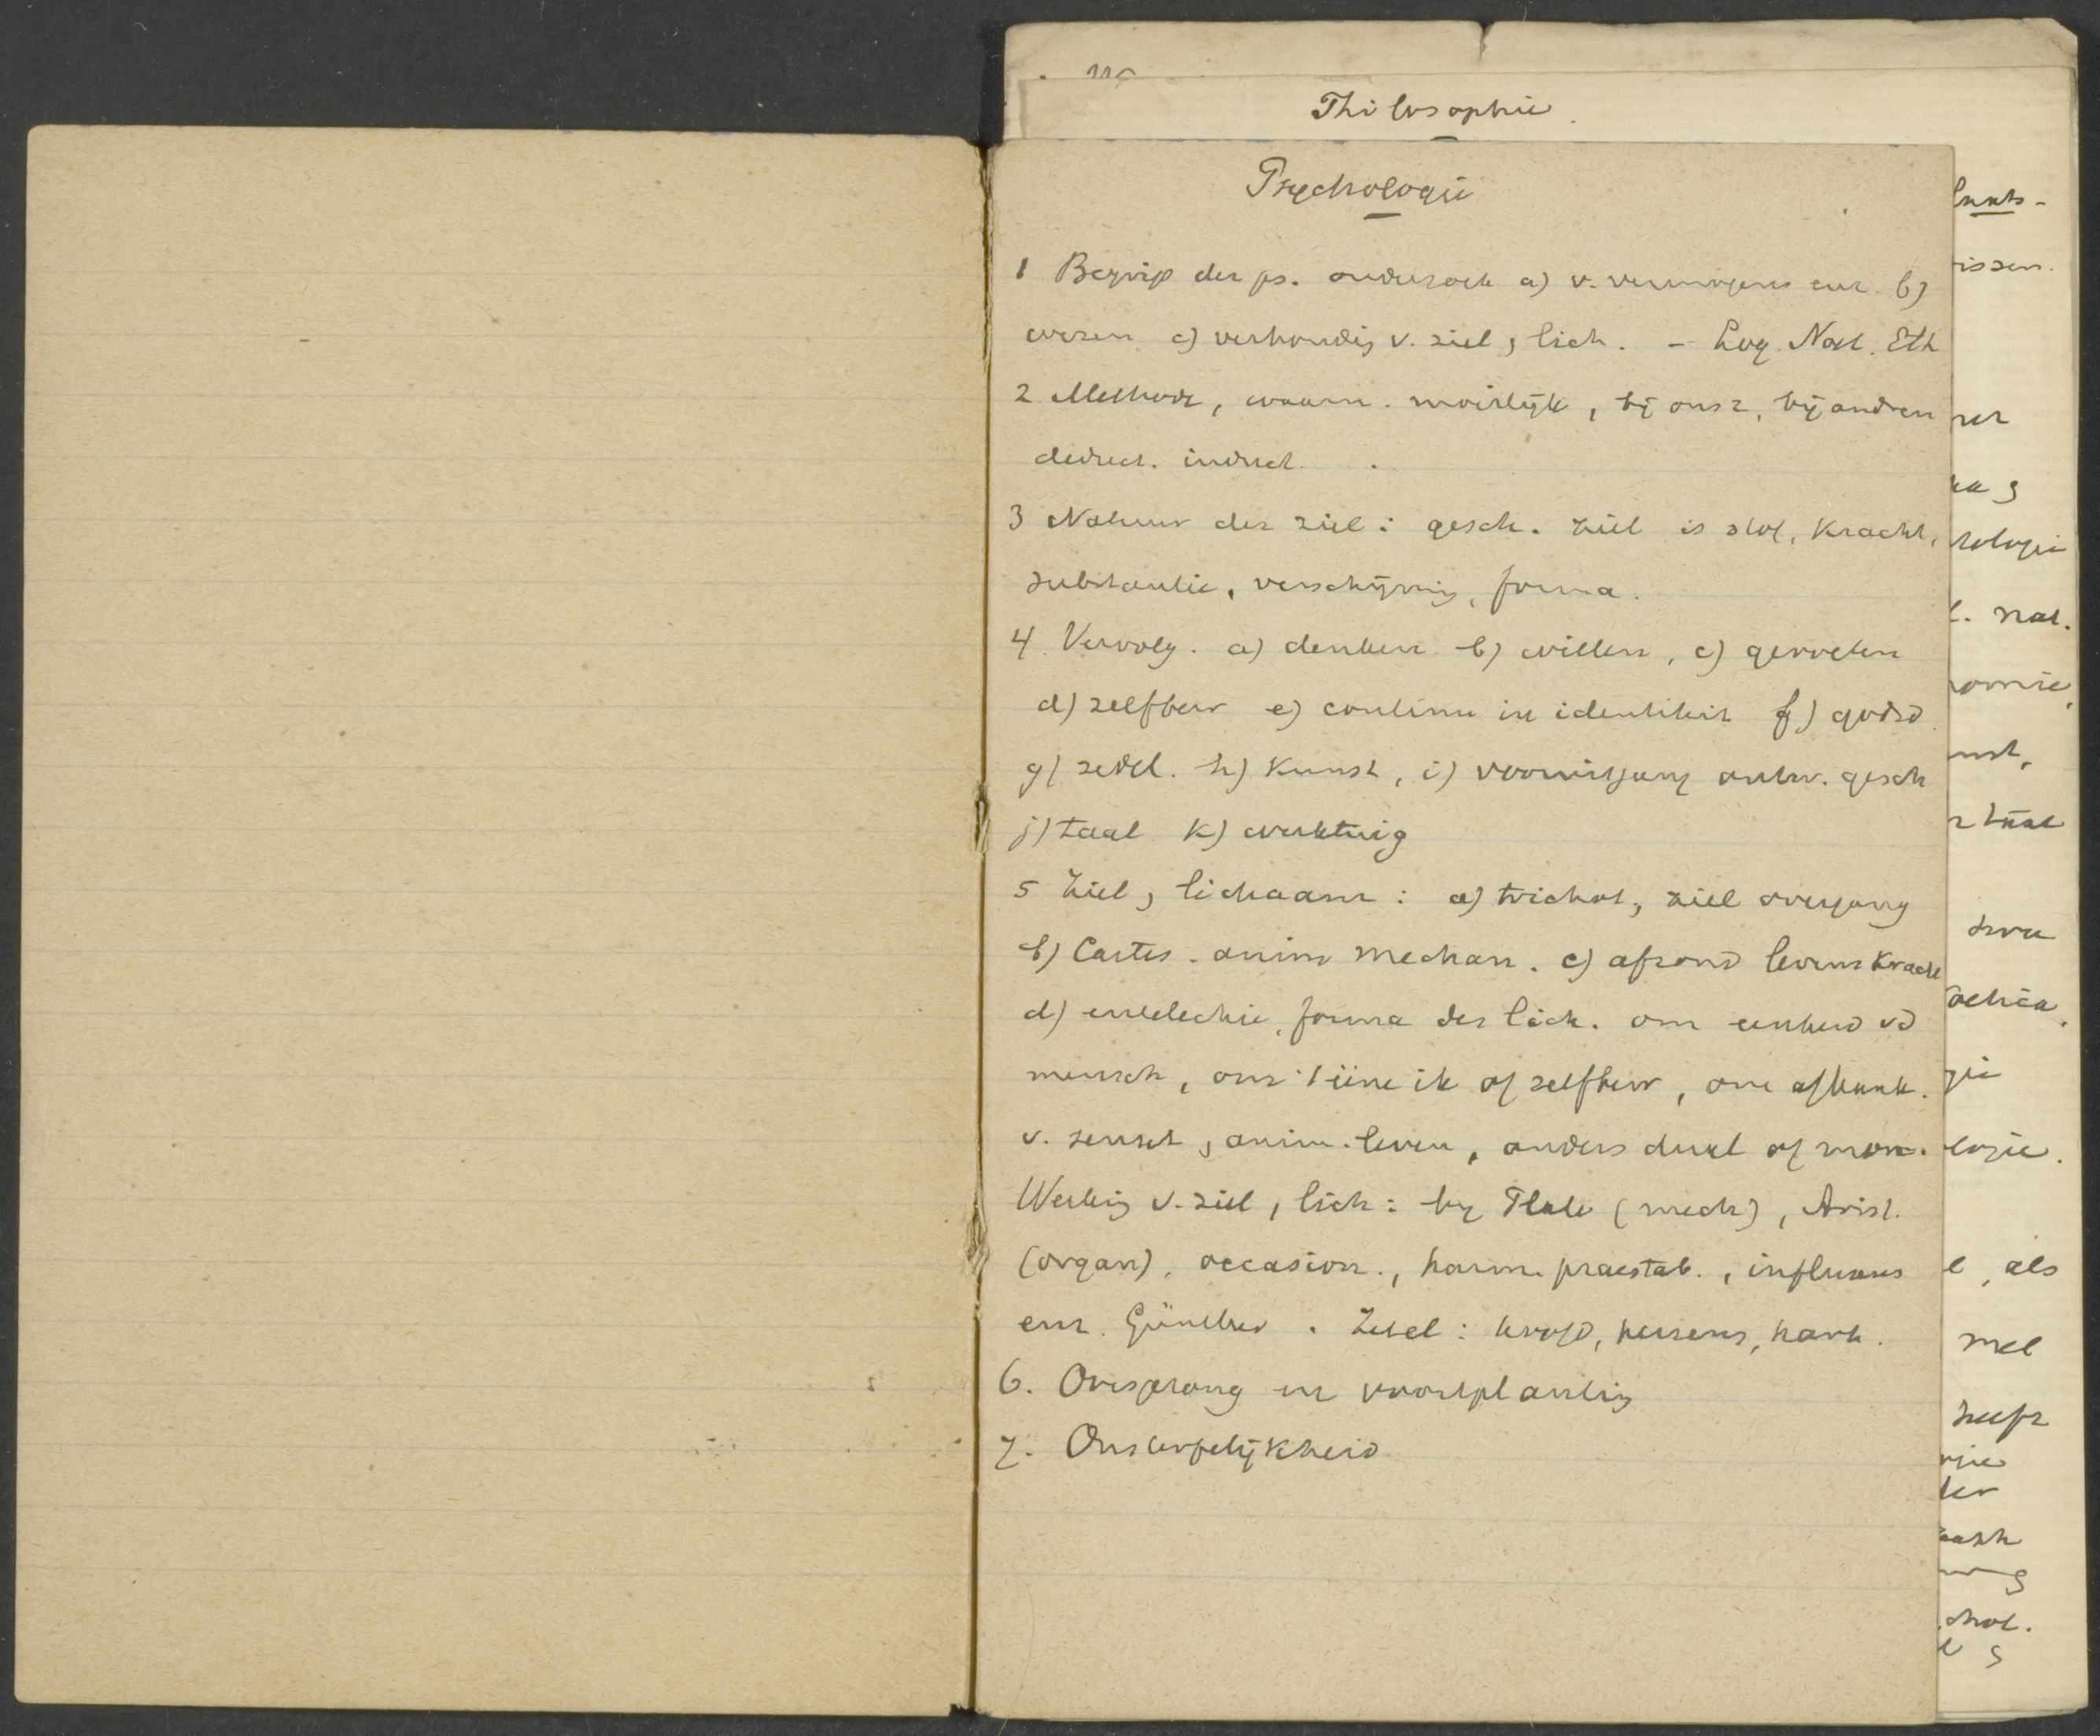 Philosophie.
Psychologie
1 Begrip der ps. onderzoek a) v. vermogens enz. b)
wezen c) verhoudig v. ziel, lich. - Log. Nat. Eth
2 Methode, waarn. moeilijk, bij onsz, bij anderen
deduct. induct.
3 Natuur der ziel: gesch. ziel is stof, kracht,
substantie, verschijnig, forma.
4 Vervolg. a) denken b) willen, c) geweten
d) zelfbew e) continu in identiteit f) godsd
g) zedel. h) kunst, i) vooruitgang ontw. gesch
j) taal k) werktuig
5 Ziel, lichaam: a) trichot, ziel overgang
b) Cartes. anim mechan. c) afzond levenskracht
d) entelechie, forma der lich. om eenheid vd
mensch, om 't ééne ik of zelfbew, om afhank.
v. sensit, anim. leven, anders dual of mon.
Werkig v. ziel, lich: by Plato (mech), Arist.
(organ), occasion., harm. praestab., influxus
enz. Günther. Zetel: hersens, hart.
6. Oorsprong en voortplantig
7. Onsterfelijkheid
issen.
nat.
omie,
unst,
logie.
als
met
heeft
der
chol.